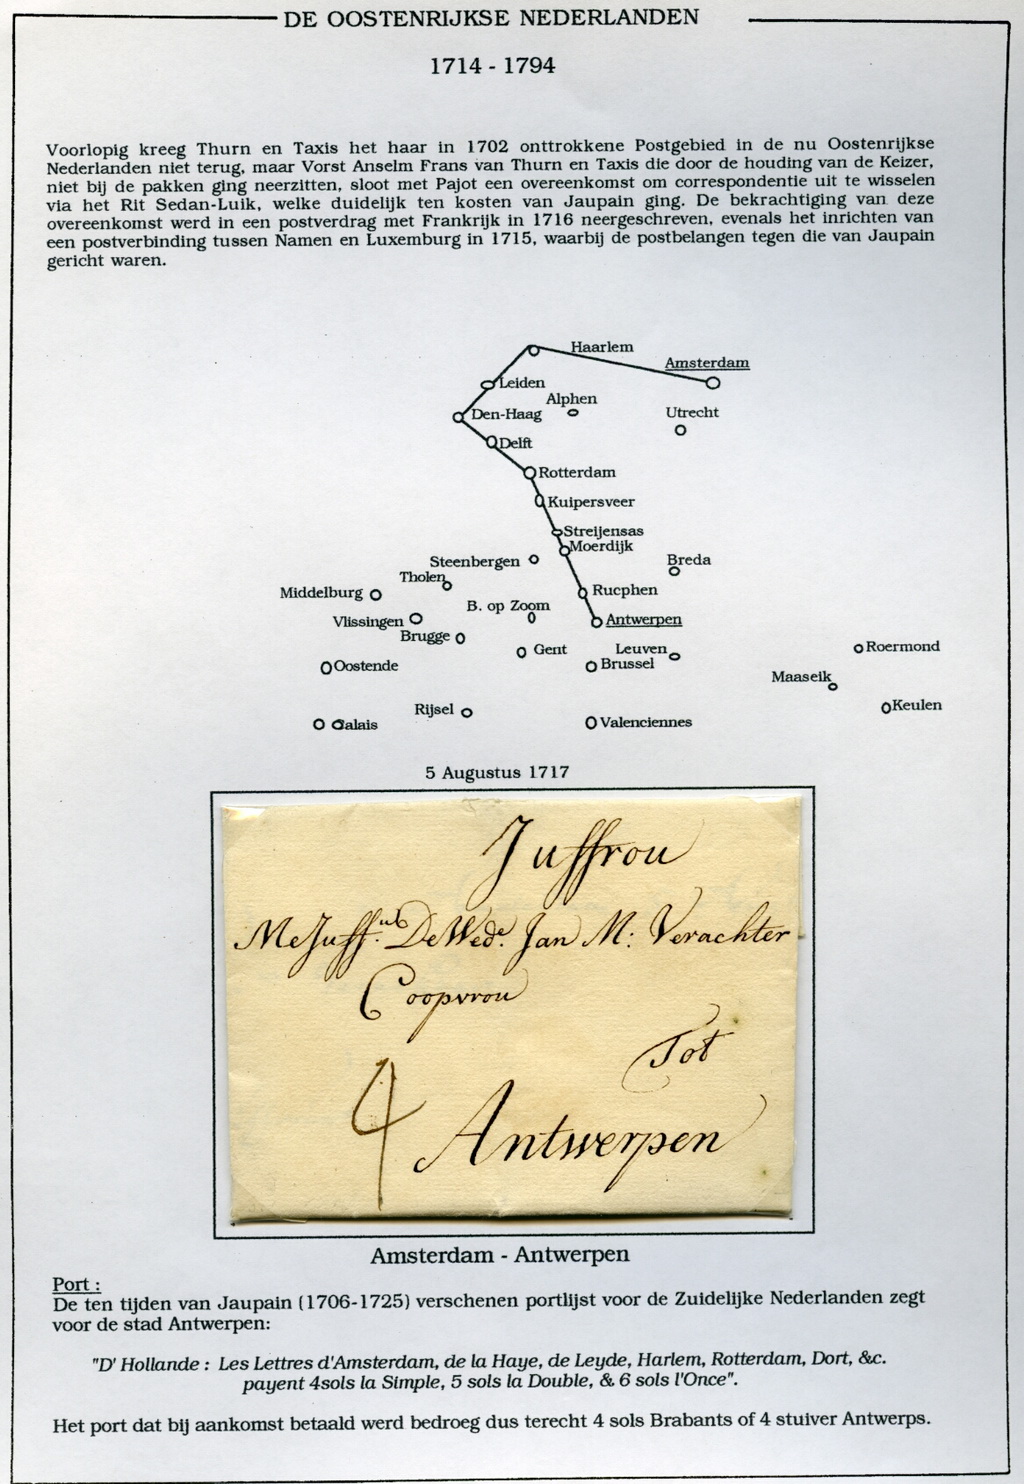 DE OOSTENRIJKSE NEDERLANDEN
1714 - 1794
Voorlopig kreeg Thurn en Taxis het haar in 1702 onttrokkene Postgebied in de nu Oostenrijkse
Nederlanden niet terug, maar Vorst Anselm Frans van Thurn en Taxis die door de houding van de Keizer,
niet bij de pakken ging neerzitten, sloot met Pajot een overeenkomst om correspondentie uit te wisselen
via het Rit Sedan-Luik, welke duidelijk ten kosten van Jaupain ging. De bekrachtiging van deze
overeenkomst werd in een postverdrag met Frankrijk in 1716 neergeschreven, evenals het inrichten van
een postverbinding tussen Namen en Luxemburg in 1715, waarbij de postbelangen tegen die van Jaupain
gericht waren.
Haarlem
Amsterdam
Leiden
Alphen
Den-Haag
Utrecht
Delft
Rotterdam
Kuipersveer
Streijensas
Moerdijk
Steenbergen
Breda
Tholen
Middelburg
Rucphen
B. op Zoom
Vlissingen
Antwerpen
Brugge
Gent
Leuven
Roermond
Oostende
Brussel
Maaseik
Rijsel
Keulen
Calais
Valenciennes
5 Augustus 1717
Juffrou
MeJuff. De Wede. Jan M: Verachter
Coopvrou
Tot
4 Antwerpen
Amsterdam - Antwerpen
Port :
De ten tijden van Jaupain (1706-1725) verschenen portlijst voor de Zuidelijke Nederlanden zegt
voor de stad Antwerpen:
"D' Hollande : Les Lettres d'Amsterdam, de la Haye, de Leyde, Harlem, Rotterdam, Dort, &c.
payent 4sols la Simple, 5 sols la Double, & 6 sols l'Once".
Het port dat bij aankomst betaald werd bedroeg dus terecht 4 sols Brabants of 4 stuiver Antwerps.